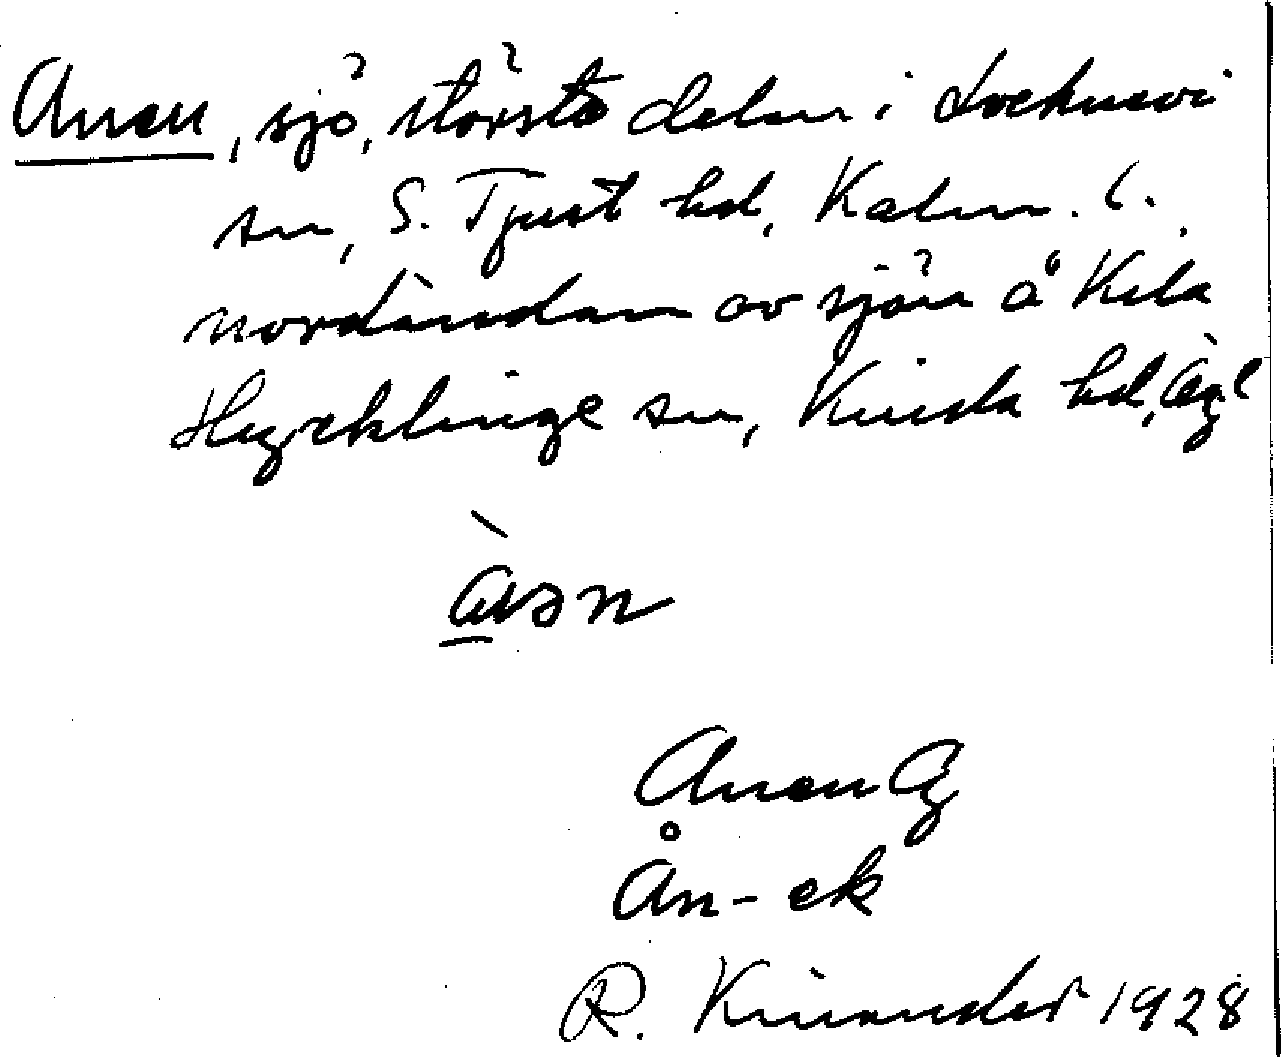 Anen, sjö, största delen i Locknevi
sn, S. Tjust hd, Kalm. l.
nordändan av sjön å Kila
Hycklinge sn, Kinda hd, Ög l
Anen G
Ån-ek
R. Kinander 1928